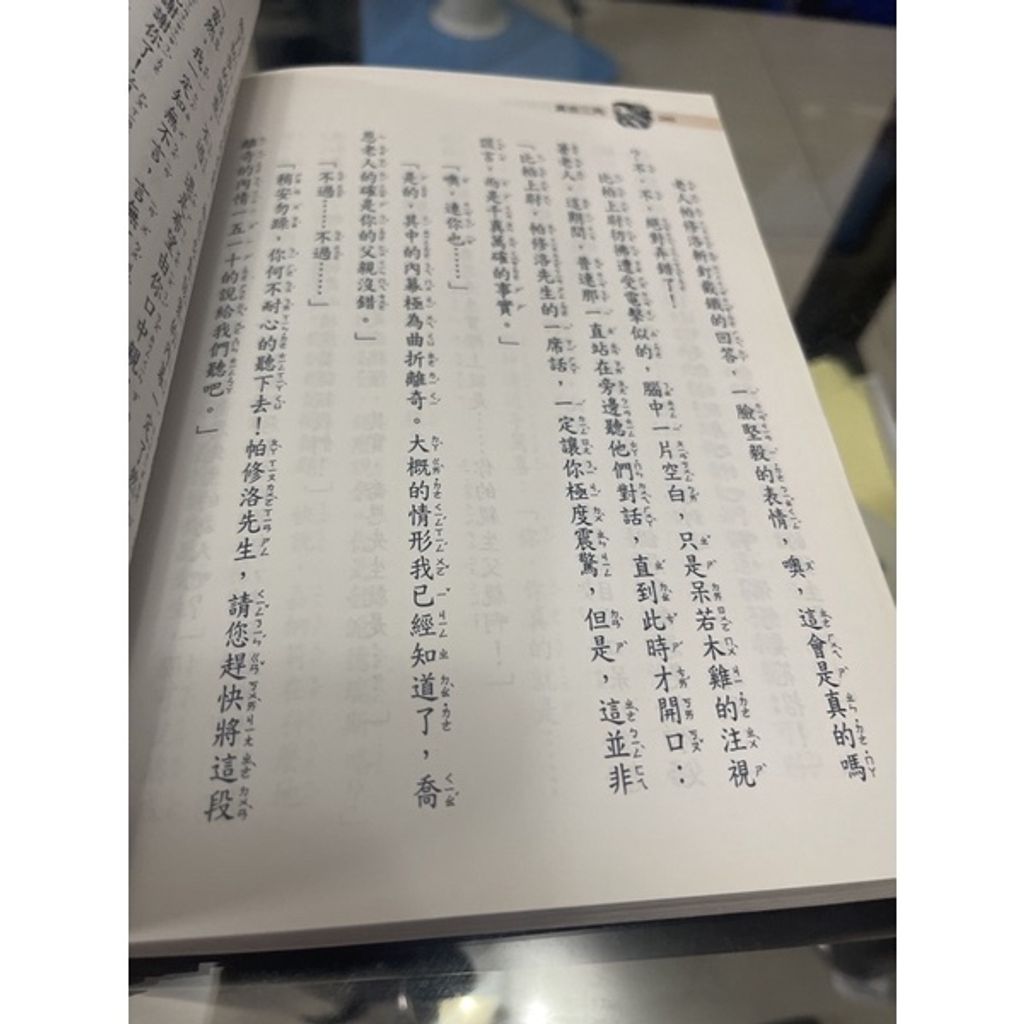 老人帕修洛斬釘截鐵的回答，一臉堅毅的表情，噢，這會是真的嗎
？不，不，絕對弄錯了！
比柏上尉彷彿遭受電擊似的，腦中一片空白，只是呆若木雞的注視
著老人。這期間，普達那一直站在旁邊聽他們對話，直到此時才開口：
「比柏上尉，帕修洛先生的一席話，一定讓你極度震驚，但是，這並非
謊言，而是千真萬確的事實。」
「噢，連你也……」
「是的，其中的內幕極為曲折離奇。大概的情形我已經知道了，喬
恩老人的確是你的父親沒錯。」
「不過……不過……」
「稍安勿躁，你何不耐心的聽下去！帕修洛先生，請您趕快將這段
離奇的內情一五一十的說給我們聽吧。」
我一定知無不言，言無
謝謝你了！